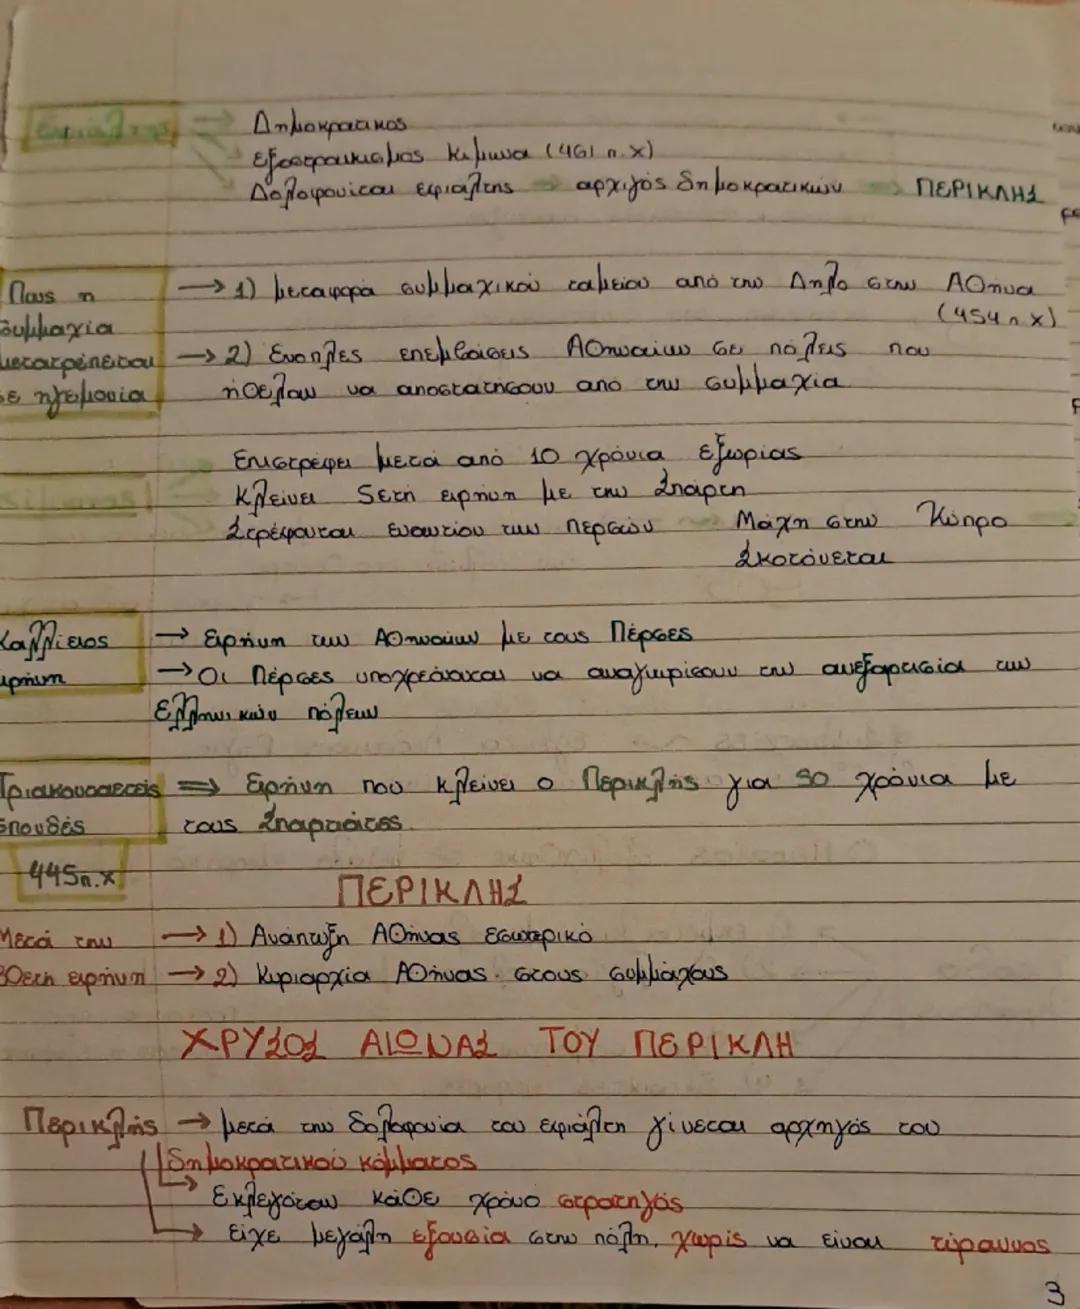 Εφιάλτης → Δημοκρατικος
εξοστρακισμος Κιμωνα (461 π.Χ)
Δολοφονίται εφιάλτης → αρχιγός δημοκρατικών → ΠΕΡΙΚΛΗΣ
Πως η → 1) μεταφορά συμμαχικού ταμείου από την Δηλο στην Αθηνα
(454 π.Χ)
συμμαχία
μετατρέπεται → 2) Ενοπλες επεμβάσεις Αθηναίων σε πόλεις που
σε ηγεμονία ήθελαν να αποστατήσουν από την συμμαχία
Επιστρέφει μετά από 10 χρόνια εξωρίας
Κλείνει 5ετή ειρήνη με την Σπάρτη
Στρέφονται εναντίον των περσών → Μάχη στην Κύπρο
Σκοτώνεται
Καλλίειος → ειρήνη των Αθηναίων με τους Πέρσες
ειρήνη → Οι Πέρσες υποχρεώνονται να αναγνωρίσουν την ανεξαρτισία των
Ελληνικών πόλεων
Τριακονταετείς ⇒ Ειρήνη που κλείνει ο Περικλής για 30 χρόνια με
σπονδές τους Σπαρτιάτες.
445π.Χ
ΠΕΡΙΚΛΗΣ
Μετά την → 1) Ανάπτυξη Αθήνας εσωτερικό
30ετη ειρήνη → 2) Κυριαρχία Αθήνας στους συμμάχους
ΧΡΥΣΟΣ ΑΙΩΝΑΣ ΤΟΥ ΠΕΡΙΚΛΗ
Περικλής → μετά την δολοφονία του εφιάλτη γίνεται αρχηγός του
δημοκρατικού κόμματος
→ Εκλεγόταν κάθε χρόνο στρατηγός
→ είχε μεγάλη εξουσία στην πόλη, χωρίς να είναι τύραννος
3